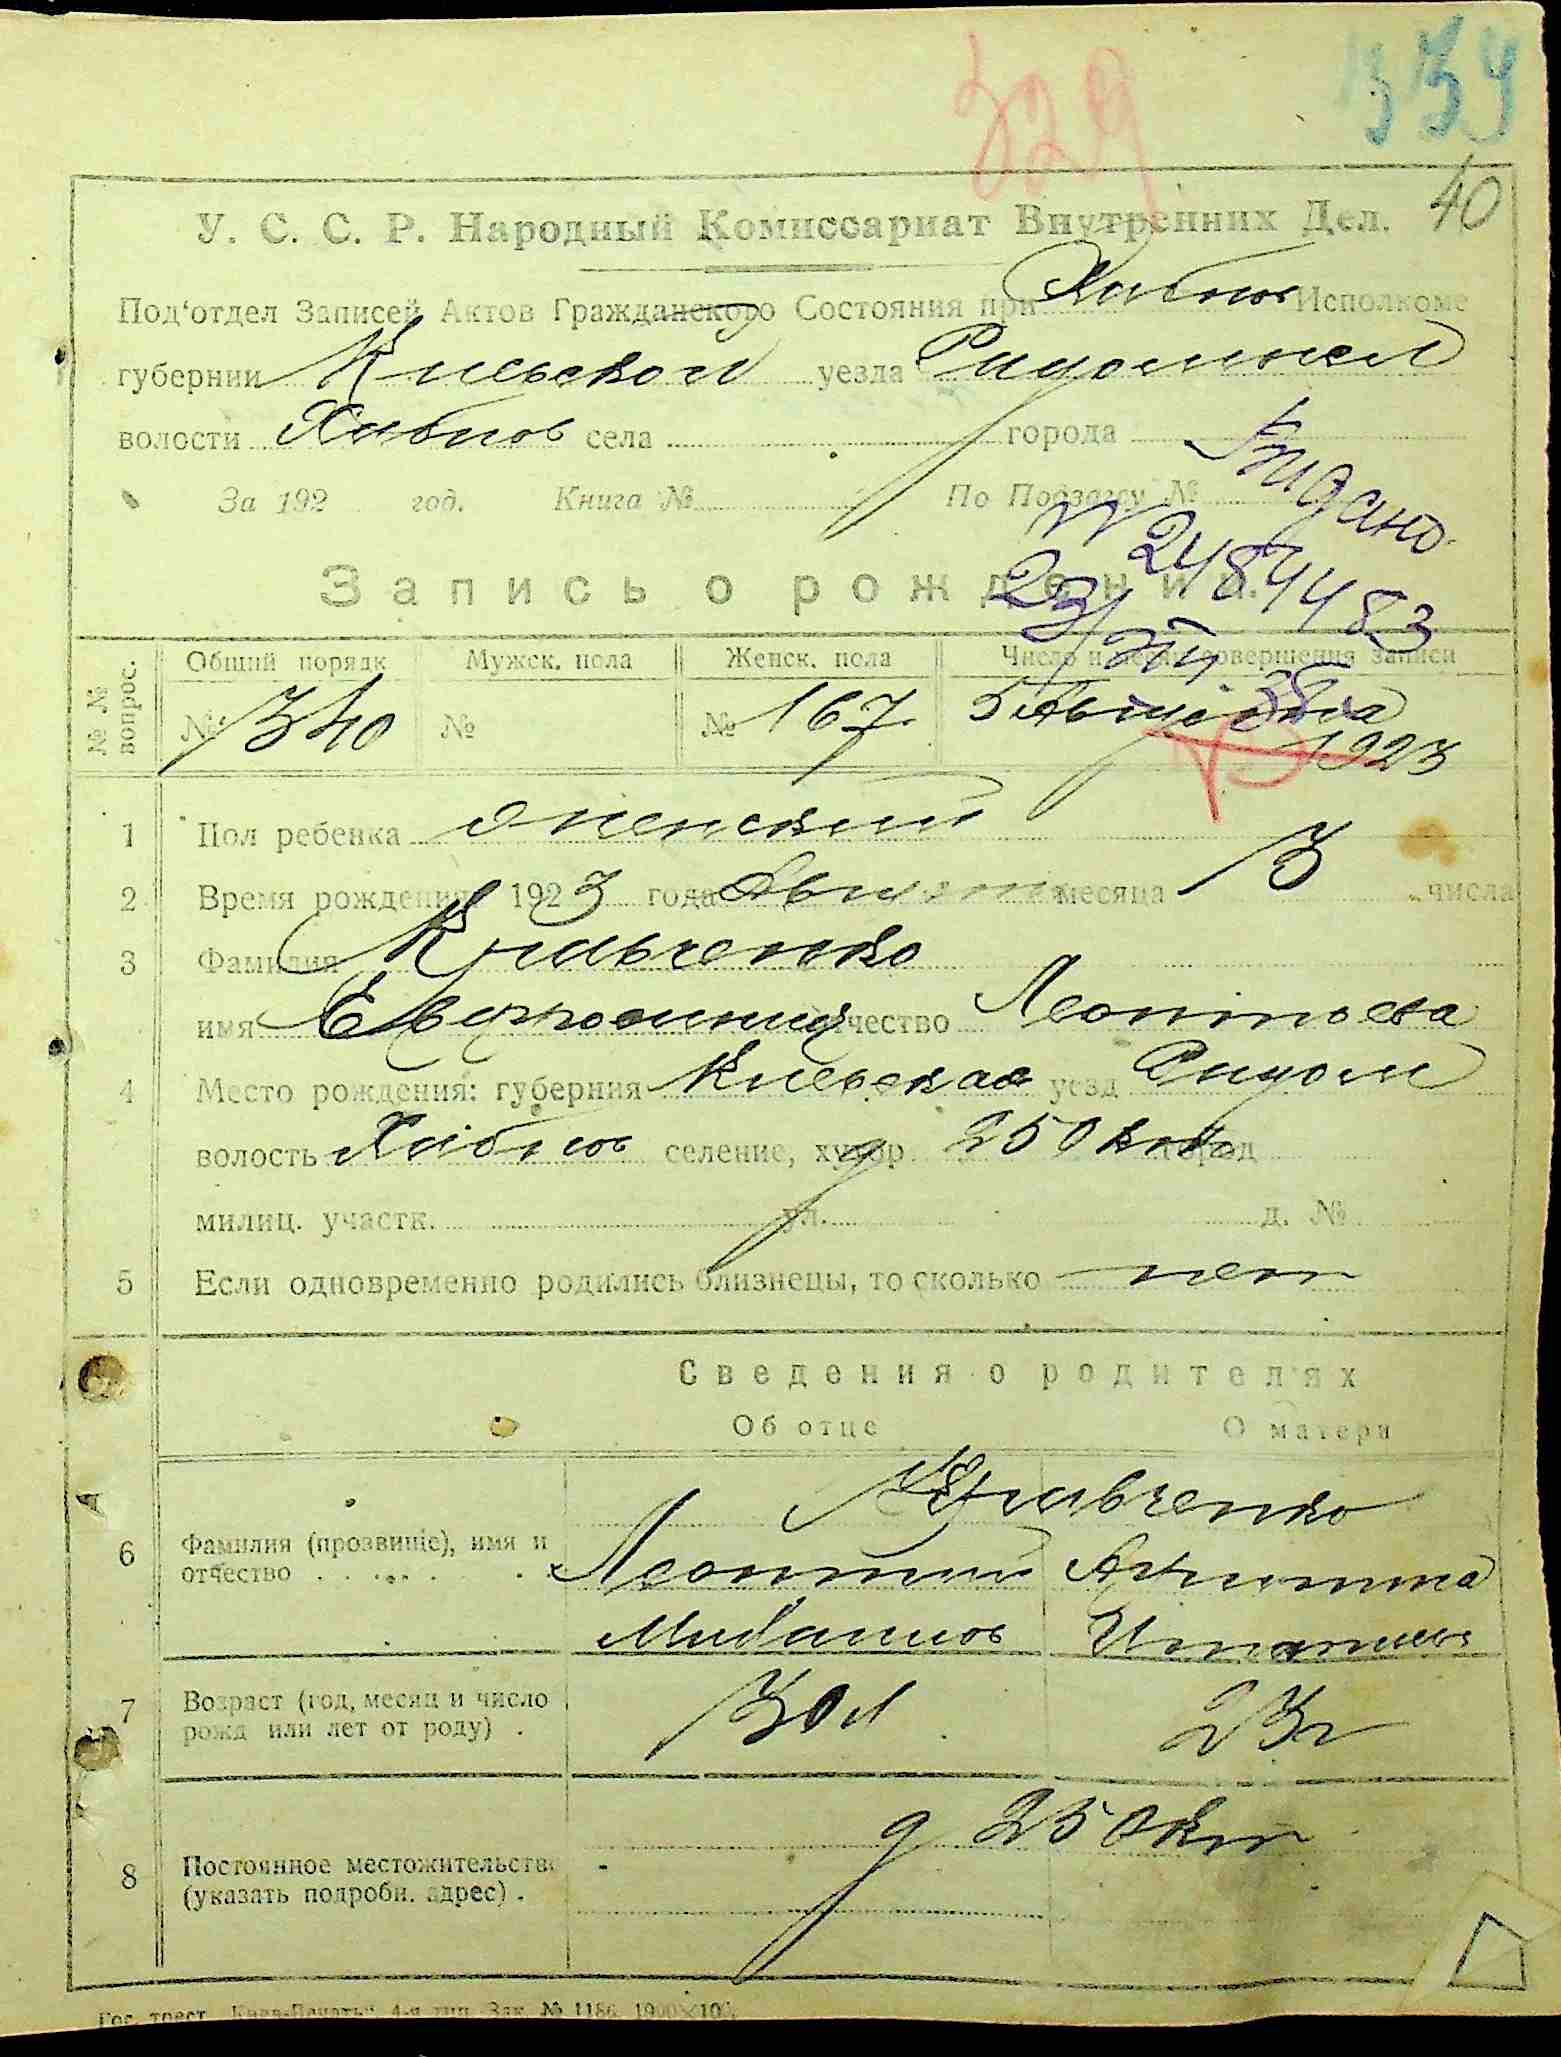 329
339
40
У. С. С. Р. Народный Комиссариат Внутренних Дел.
Под'отдел Записей Актов Гражданского Состояния при Хабнов Исполкоме
губернии Киевской уезда Радомысл
волости Хабнов села города
Видано
За 192 год. Книга № По Подзагсу №
№ 2484483
Запись о рождении.
№№ вопрос.
Общий порядк Мужск. пола Женск. пола Число и месяц совершения записи
№ 340 № № 167 5 Августа
1923
1 Пол ребенка женский
2 Время рождения 1923 года Августа месяца 3 числа
3 Фамилия Кравченко
имя Евфросиния отчество Леонтьева
4 Место рождения: губерния Киевская уезд Радом
волость Хабнов селение, хутор город
милиц. участк. ул. д. №
5 Если одновременно родились близнецы, то сколько нет
Сведения о родителях
Об отце О матери
Кравченко
6 Фамилия (прозвищіе), имя и отчество Леонтий
7 Возраст (год, месяц и число рожд или лет от роду) 30 л 23 г
8 Постоянное местожительство (указать подробн. адрес)
Гос. трест „Киев-Печать" 4-я тип. Зак. № 1186